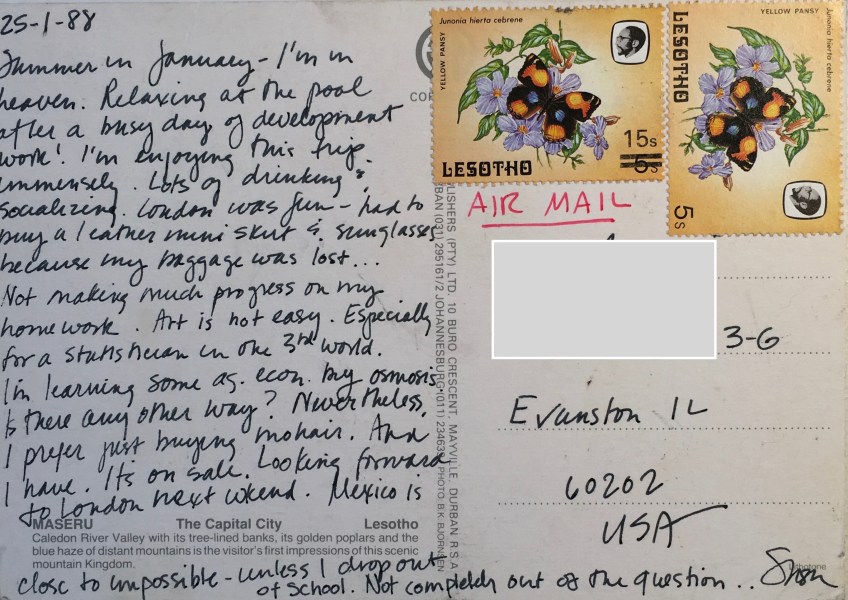 25-1-88
Summer in January - I'm in
heaven. Relaxing at the pool
after a busy day of development
work! I'm enjoying this trip
immensely. Lots of drinking &
socializing. London was fun - had to
buy a leather mini skirt & sunglasses
because my baggage was lost...
Not making much progress on my
homework. Art is not easy. Especially
for a statistician in the 3rd world.
I'm learning some ag. econ. by osmosis.
Is there any other way? Nevertheless,
I prefer just buying mohair. And
I have. It's on sale. Looking forward
to London next wkend. Mexico is
close to impossible - unless I drop out
of School. Not completely out of the question..
MASERU The Capital City Lesotho
Caledon River Valley with its tree-lined banks, its golden poplars and the
blue haze of distant mountains is the visitor's first impressions of this scenic
mountain Kingdom.
LISHERS (PTY) LTD, 10 BURO CRESCENT, MAYVILLE, DURBAN R.S.A.
BAN (031) 295161/2 JOHANNESBURG (011) PHOTO: B.K. BJORNSEN
Junonia hierta cebrene
YELLOW PANSY
15s
5s
LESOTHO
YELLOW PANSY
Junonia hierta cebrene
LESOTHO
5s
AIR MAIL
3-G
Evanston IL
60202
USA
Lithotone